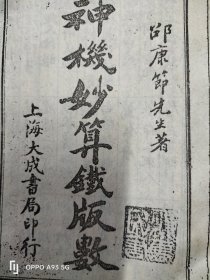 邵康節先生著
神機妙算鐵版數
上海大成書局印行
OPPO A93 5G